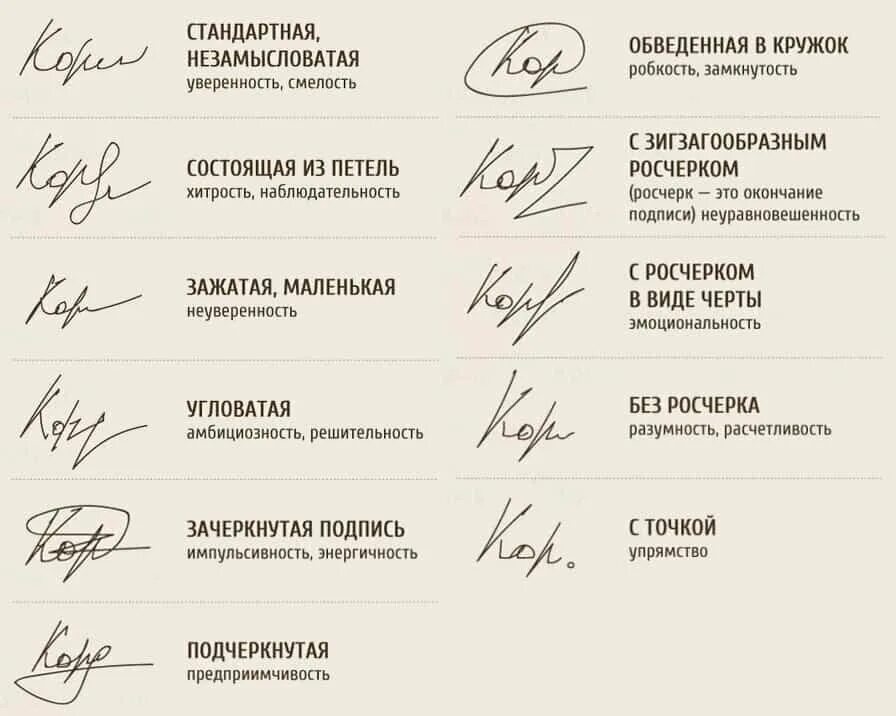 Кори
СТАНДАРТНАЯ,
НЕЗАМЫСЛОВАТАЯ
уверенность, смелость
Кор
СОСТОЯЩАЯ ИЗ ПЕТЕЛЬ
хитрость, наблюдательность
Кор
ЗАЖАТАЯ, МАЛЕНЬКАЯ
неуверенность
Кор
УГЛОВАТАЯ
амбициозность, решительность
Кор
ЗАЧЕРКНУТАЯ ПОДПИСЬ
импульсивность, энергичность
Кор
ПОДЧЕРКНУТАЯ
предприимчивость
Кор
ОБВЕДЕННАЯ В КРУЖОК
робкость, замкнутость
Кор
С ЗИГЗАГООБРАЗНЫМ
РОСЧЕРКОМ
(росчерк — это окончание
подписи) неуравновешенность
Кор
С РОСЧЕРКОМ
В ВИДЕ ЧЕРТЫ
эмоциональность
Кор
БЕЗ РОСЧЕРКА
разумность, расчетливость
Кор.
С ТОЧКОЙ
упрямство